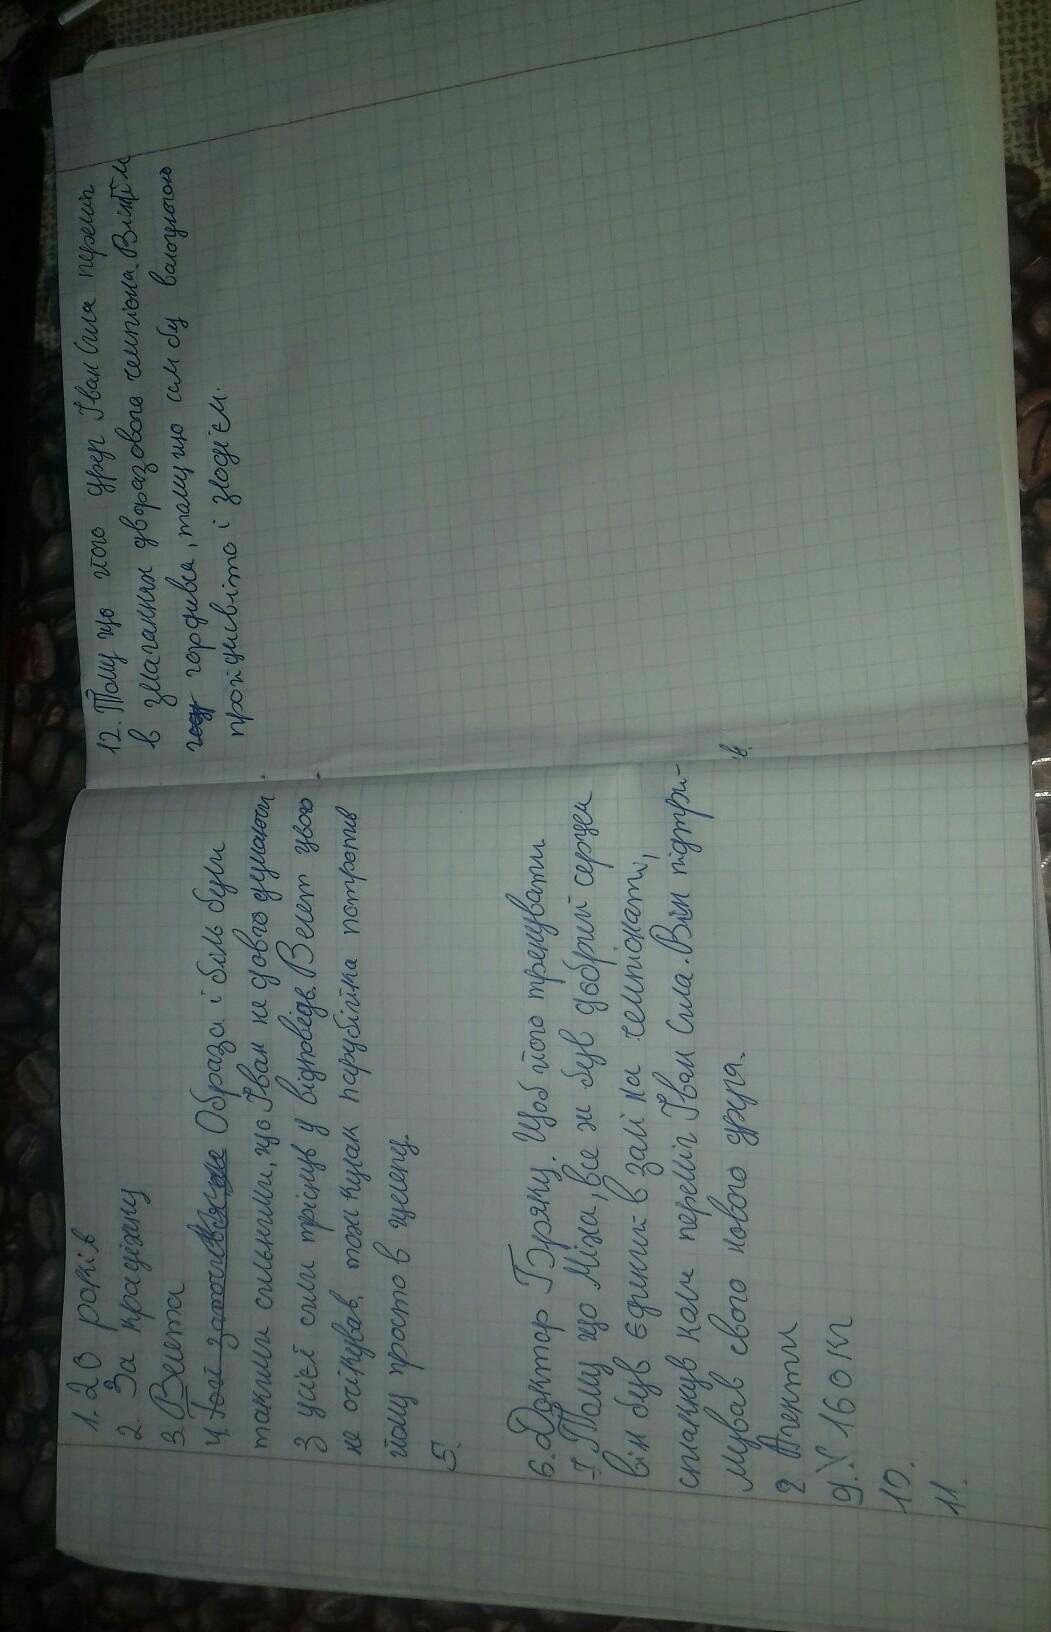 1. 20 років
2. За крадіжку
3. Велета
4. Образа і біль були
такими сильними, що Іван не довго думаючи
з усієї сили тріснув у відповідь. Велет цього
не очікував, тож кулак парубійка потрапив
йому просто в щелепу.
5.
6. Доктар Брякус. Щоб його тренувати
7. Тому що Міха, все ж був добрий серцем
він був єдиний в залі на чемпіонаті,
сплакнув коли переміг Іван Сила. Він підтри-
мував свого нового друга.
8 Агенти
9. У 160 кг
10.
11.
12. Тому що його друг Іван Сила переміг
в змаганнях дворазового чемпіона. Він їм
гордився, тому що сам бу волоцюгою
пройдисвітом і злодієм.